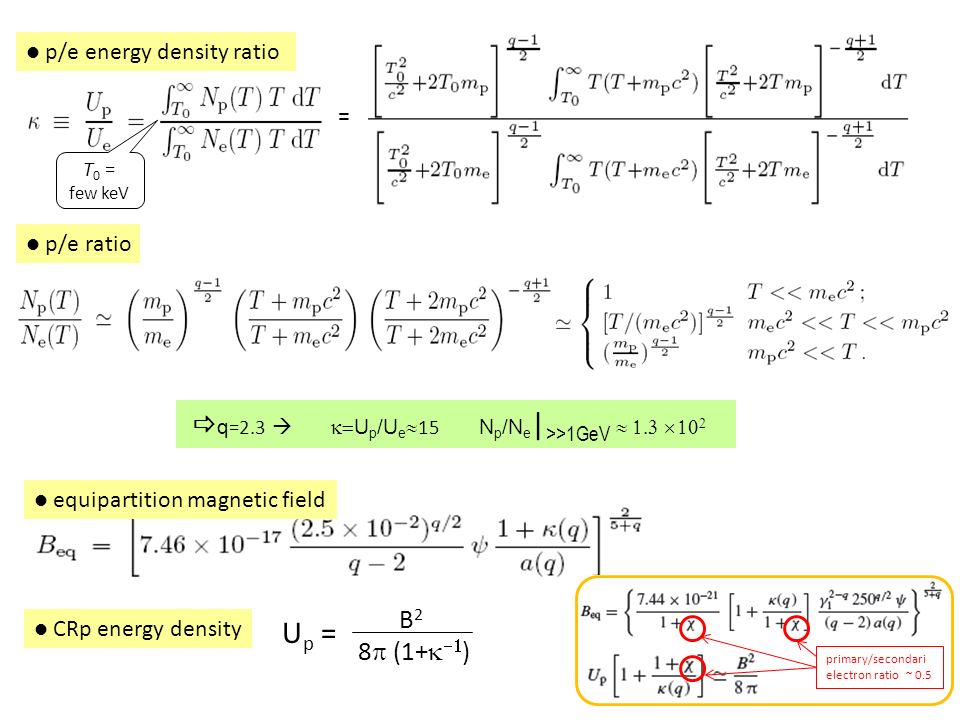 ● p/e energy density ratio
κ ≡ U_p/U_e = ∫_{T_0}^∞ N_p(T) T dT / ∫_{T_0}^∞ N_e(T) T dT
= [T_0^2/c^2 +2T_0 m_p]^{(q−1)/2} ∫_{T_0}^∞ T(T+m_p c^2) [T^2/c^2 +2T m_p]^{−(q+1)/2} dT
/ [T_0^2/c^2 +2T_0 m_e]^{(q−1)/2} ∫_{T_0}^∞ T(T+m_e c^2) [T^2/c^2 +2T m_e]^{−(q+1)/2} dT
T_0 =
few keV
● p/e ratio
N_p(T)/N_e(T) ≃ (m_p/m_e)^{(q−1)/2} ((T + m_p c^2)/(T + m_e c^2)) ((T + 2m_p c^2)/(T + 2m_e c^2))^{−(q+1)/2} ≃ {
1 T << m_e c^2 ;
[T/(m_e c^2)]^{(q−1)/2} m_e c^2 << T << m_p c^2
(m_p/m_e)^{(q−1)/2} m_p c^2 << T .
⇨ q=2.3 → κ=U_p/U_e≈15 N_p/N_e|_{>>1GeV} ≈ 1.3 ×10^2
● equipartition magnetic field
B_eq = [7.46 × 10^{−17} (2.5 × 10^{−2})^{q/2}/(q − 2) ψ (1 + κ(q))/a(q)]^{2/(5+q)}
● CRp energy density
U_p = B^2 / 8π (1+κ^{−1})
B_eq = {7.44 × 10^{−21}/(1 + χ) [1 + κ(q)/(1 + χ)] γ_1^{2−q} 250^{q/2} ψ/((q − 2) a(q))}^{2/(5+q)}
U_p [1 + (1 + χ)/κ(q)] ≃ B^2/8π
primary/secondari
electron ratio ~ 0.5